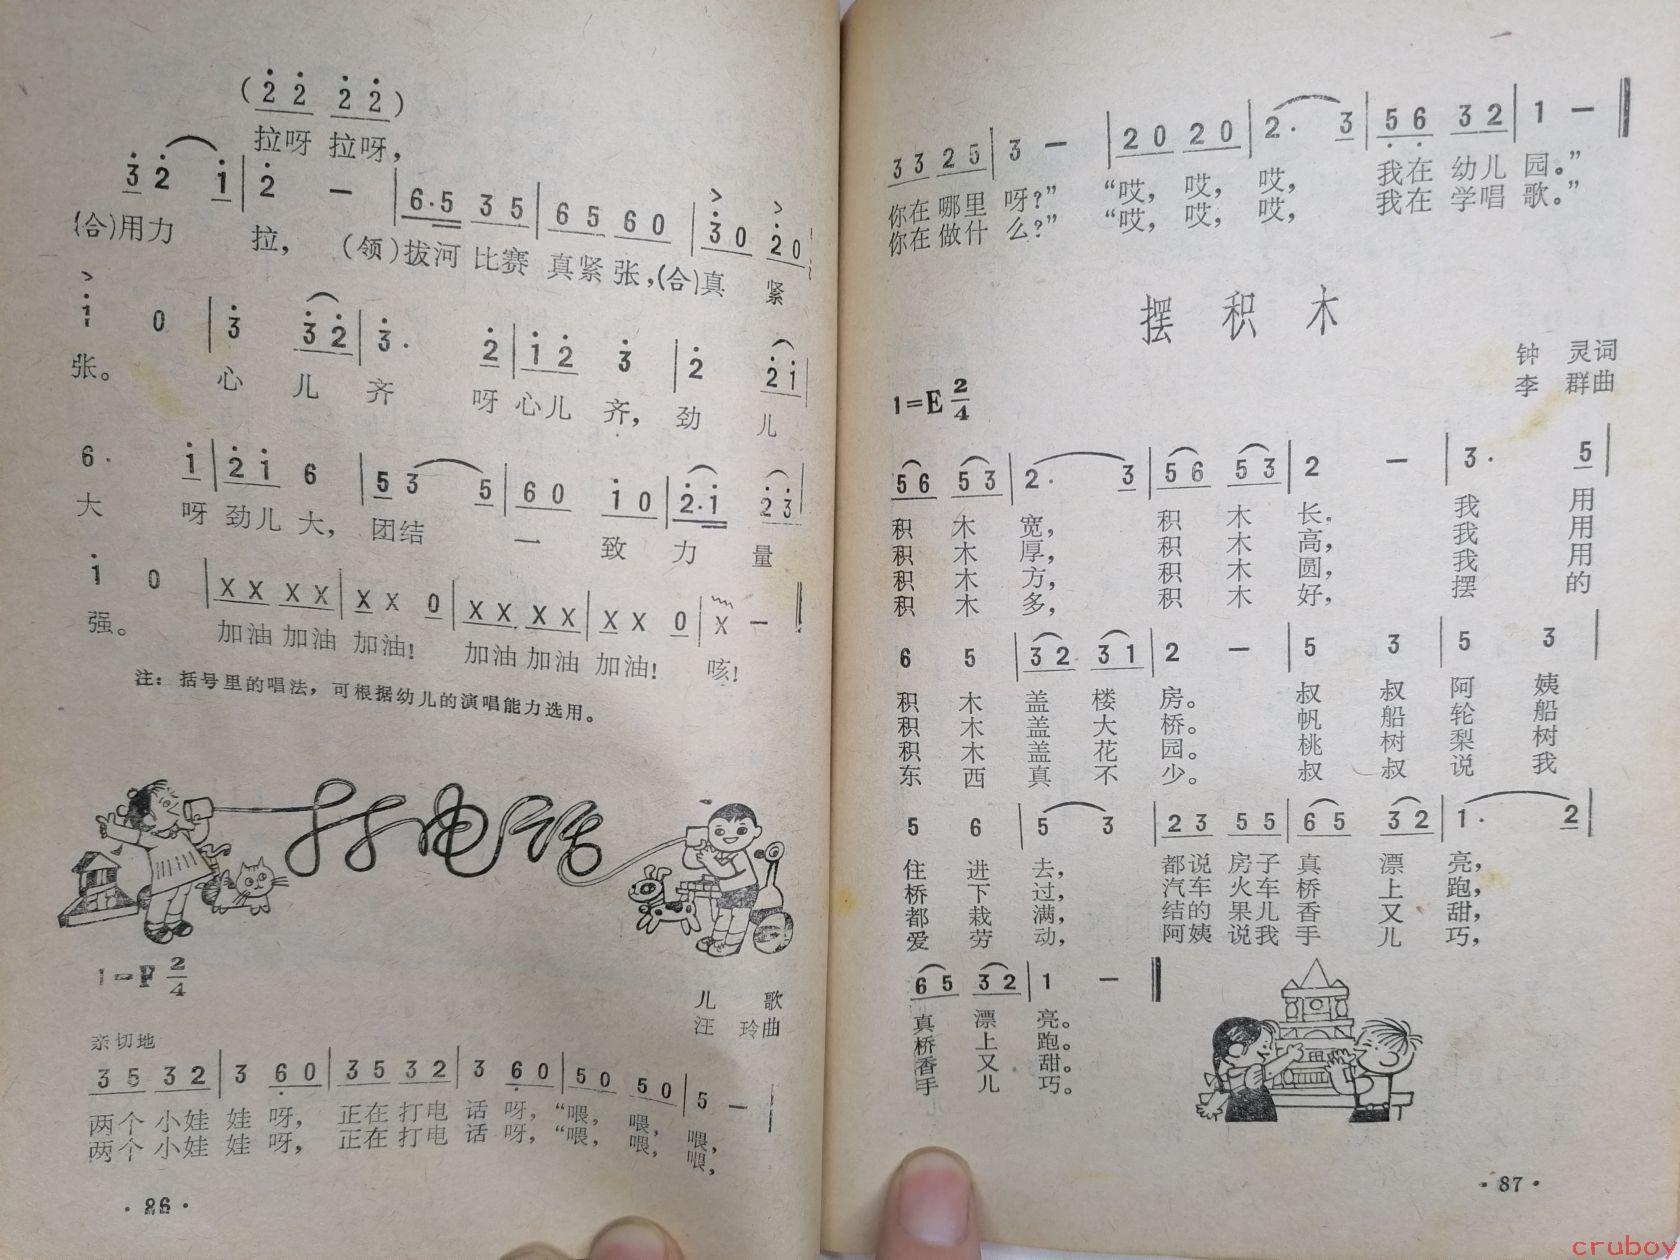 (2̇ 2̇ 2̇ 2̇)
拉呀 拉呀，
3̇ 2̇ 1̇ | 2̇ － | 6·5 3 5 | 6 5 6 0 | 3̇ 0 2̇ 0
(合)用力 拉， (领)拔河 比赛 真紧 张，(合)真 紧
1̇ 0 | 3̇ 3̇ 2̇ | 3̇· 2̇ | 1̇ 2̇ 3̇ | 2̇ 2̇ 1̇ |
张。 心 儿 齐 呀 心儿 齐， 劲 儿
6· 1̇ | 2̇ 1̇ 6 | 5 3 5 | 6 0 1̇ 0 | 2̇·1̇ 2̇ 3̇ |
大 呀 劲儿 大， 团结 一 致 力 量
1̇ 0 | X X X X | X X 0 | X X X X | X X 0 | X － ‖
强。 加油 加油 加油！ 加油 加油 加油！ 咳！
注：括号里的唱法，可根据幼儿的演唱能力选用。
打电话
1=F 2/4
儿 歌
汪 玲曲
亲切地
3 5 3 2 | 3 6̣ 0 | 3 5 3 2 | 3 6̣ 0 | 5 0 5 0 | 5 － |
两个 小娃 娃 呀， 正在 打电 话 呀，“喂， 喂， 喂，
两个 小娃 娃 呀， 正在 打电 话 呀，“喂， 喂， 喂，
·86·
3 3 2 5 | 3 － | 2 0 2 0 | 2· 3 | 5̣ 6̣ 3 2 | 1 － ‖
你在 哪里 呀？” “哎， 哎， 哎， 我在 幼儿 园。”
你在 做什 么？” “哎， 哎， 哎， 我在 学唱 歌。”
摆 积 木
钟 灵词
李 群曲
1=E 2/4
5 6 5 3 | 2· 3 | 5 6 5 3 | 2 － | 3· 5 |
积 木 宽， 积 木 长， 我 用
积 木 厚， 积 木 高， 我 用
积 木 方， 积 木 圆， 我 用
积 木 多， 积 木 好， 摆 的
6 5 | 3 2 3 1 | 2 － | 5 3 | 5 3 |
积 木 盖 楼 房。 叔 叔 阿 姨
积 木 盖 大 桥。 帆 船 轮 船
积 木 盖 花 园。 桃 树 梨 树
东 西 真 不 少。 叔 叔 说 我
5 6 | 5 3 | 2 3 5 5 | 6 5 3 2 | 1· 2 |
住 进 去， 都说 房子 真 漂 亮，
桥 下 过， 汽车 火车 桥 上 跑，
都 栽 满， 结的 果儿 香 又 甜，
爱 劳 动， 阿姨 说我 手 儿 巧，
6 5 3 2 | 1 － ‖
真 漂 亮。
桥 上 跑。
香 又 甜。
手 儿 巧。
·87·
cruboy